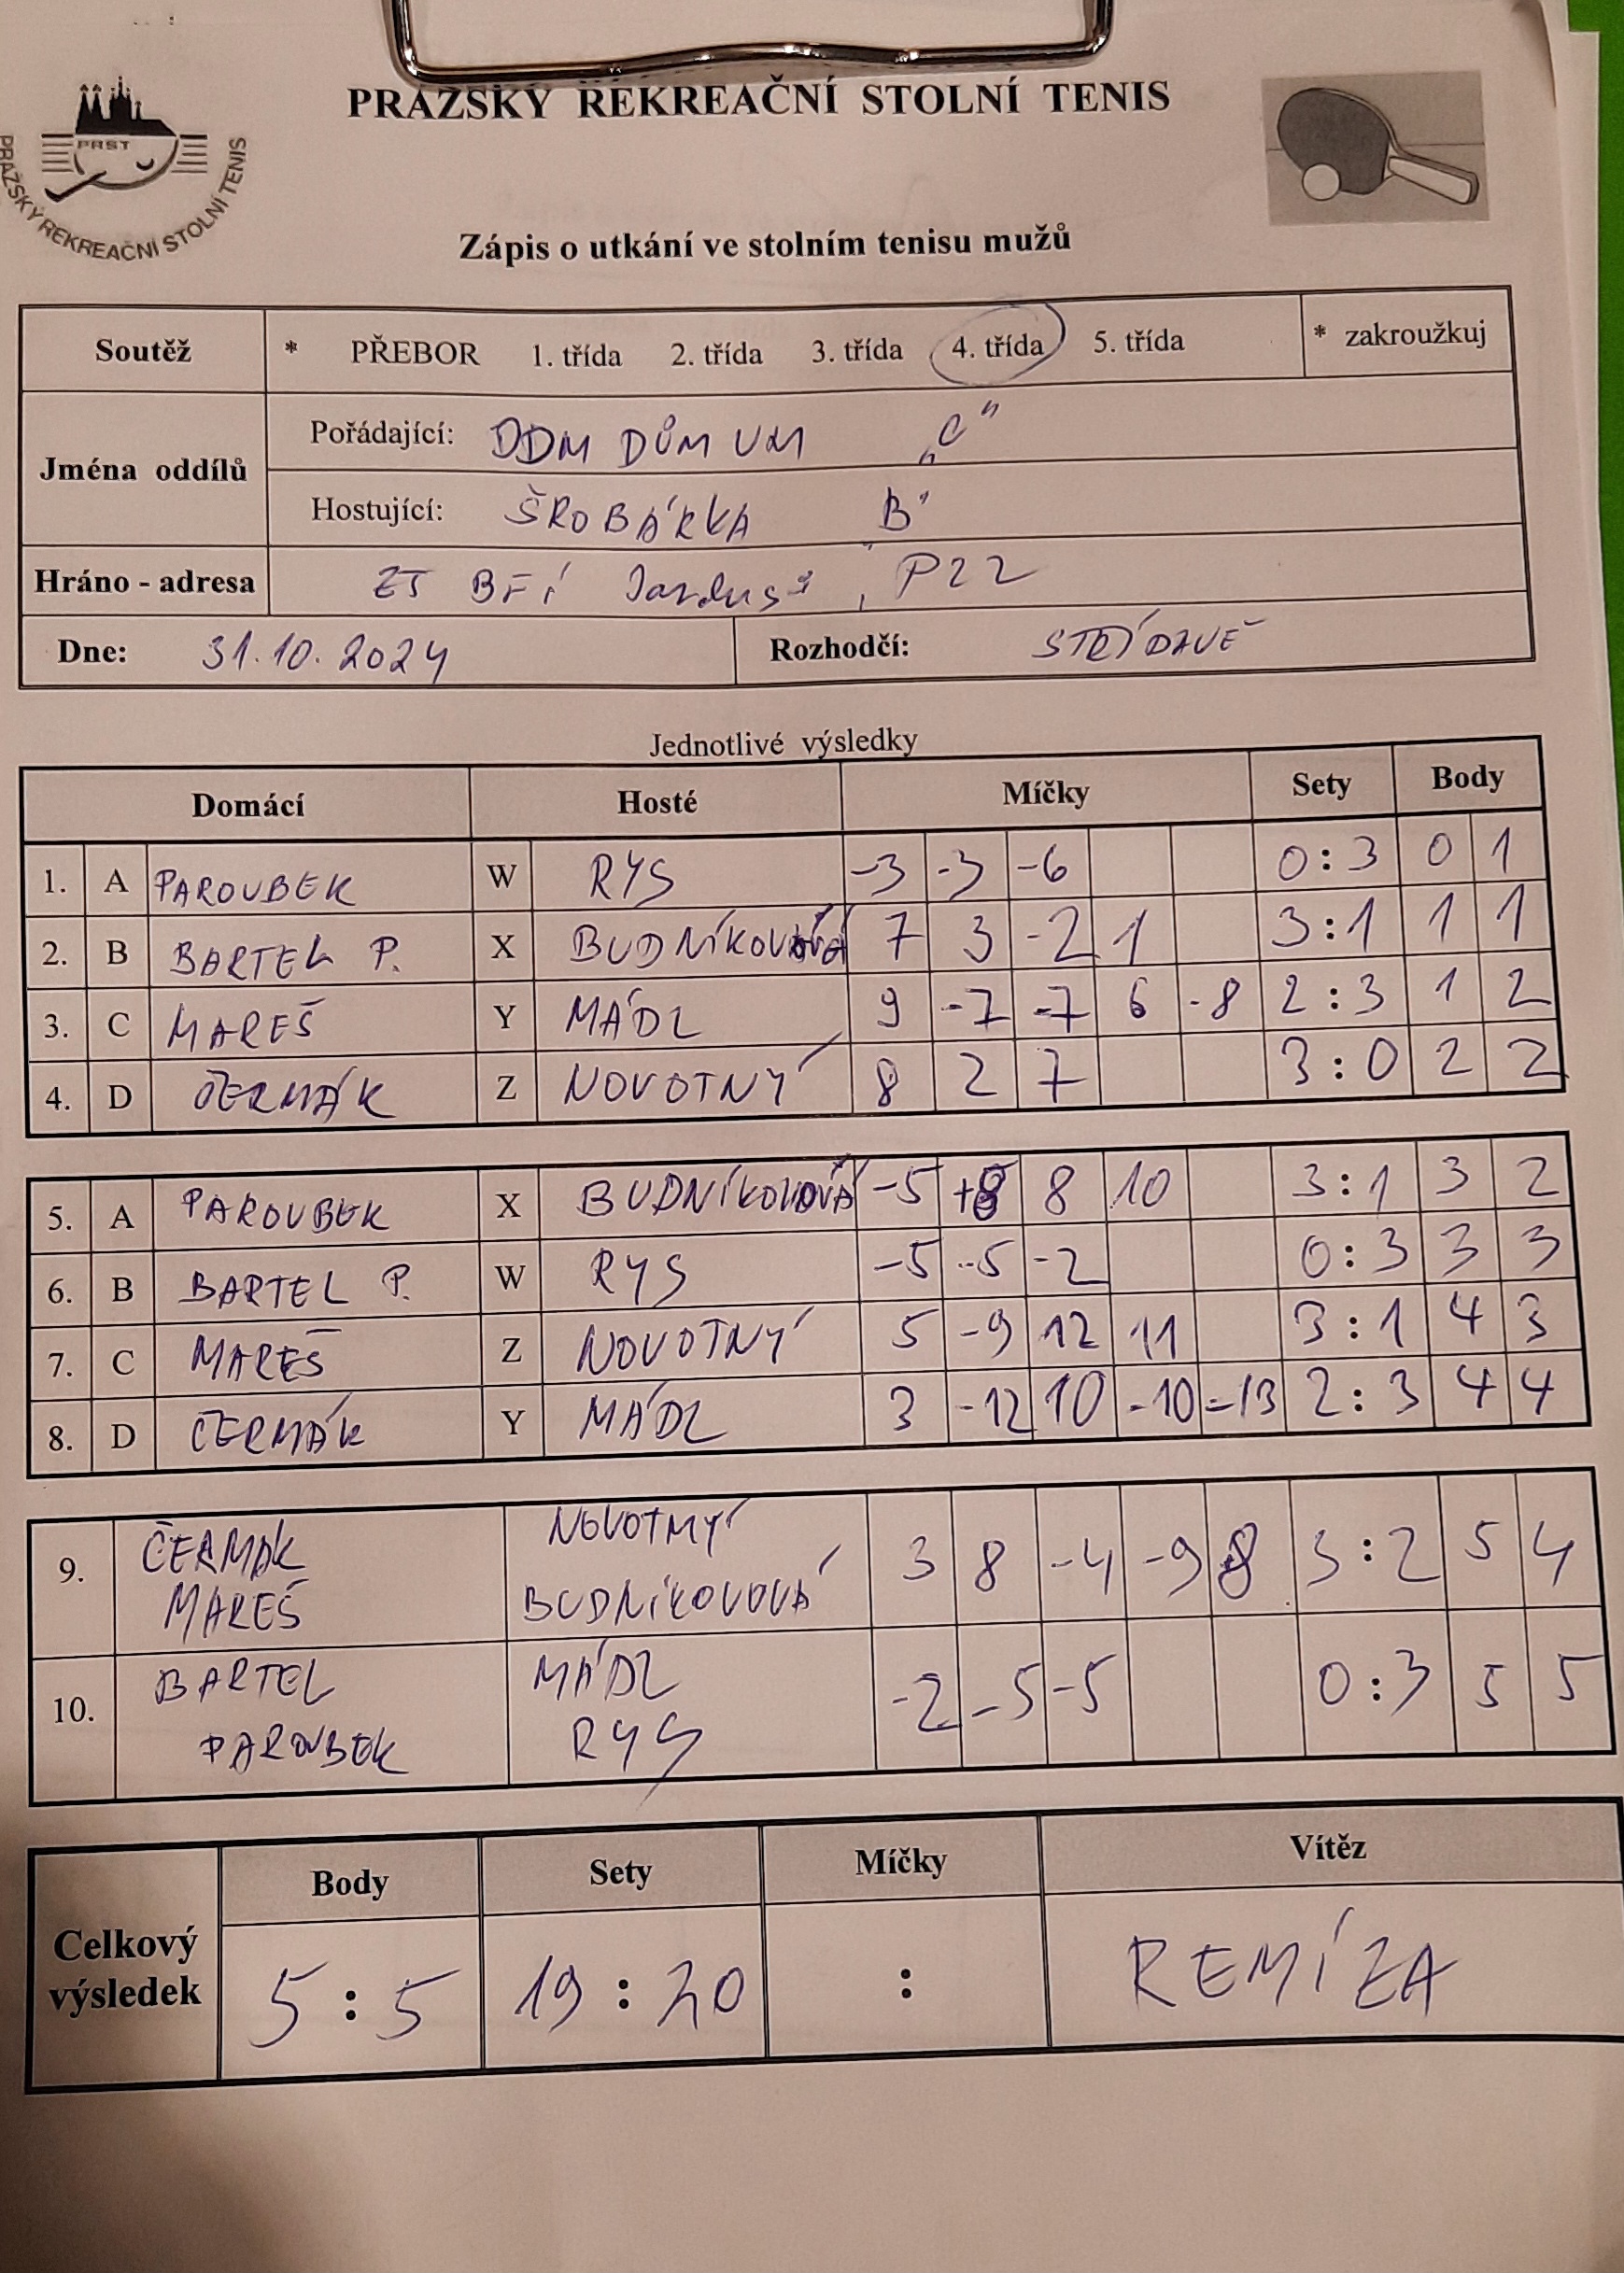 PRAŽSKÝ REKREAČNÍ STOLNÍ TENIS
PRST
PRAŽSKÝ REKREAČNÍ STOLNÍ TENIS
Zápis o utkání ve stolním tenisu mužů
Soutěž * PŘEBOR 1. třída 2. třída 3. třída 4. třída 5. třída * zakroužkuj
Jména oddílů
Pořádající: DDM DŮM UM „C"
Hostující: ŠROBÁRKA „B"
Hráno - adresa BŘÍ P22
Dne: 31.10.2024 Rozhodčí: STŘÍDAVĚ
Jednotlivé výsledky
Domácí Hosté Míčky Sety Body
1. A PAROUBEK W RYS -3 -3 -6 0:3 0 1
2. B BARTEL P. X BUDNÍKOVOVÁ 7 3 -2 1 3:1 1 1
3. C MAREŠ Y MÁDL 9 -7 -7 6 -8 2:3 1 2
4. D ČERMÁK Z NOVOTNÝ 8 2 7 3:0 2 2
5. A PAROUBEK X BUDNÍKOVOVÁ -5 +8 8 10 3:1 3 2
6. B BARTEL P. W RYS -5 -5 -2 0:3 3 3
7. C MAREŠ Z NOVOTNÝ 5 -9 12 11 3:1 4 3
8. D ČERMÁK Y MÁDL 3 -12 10 -10 -13 2:3 4 4
9. ČERMÁK NOVOTNÝ 3 8 -4 -9 8 3:2 5 4
MAREŠ BUDNÍKOVOVÁ
10. BARTEL MÁDL -2 -5 -5 0:3 5 5
PAROUBEK RYS
Celkový výsledek
Body Sety Míčky Vítěz
5:5 19:20 : REMÍZA